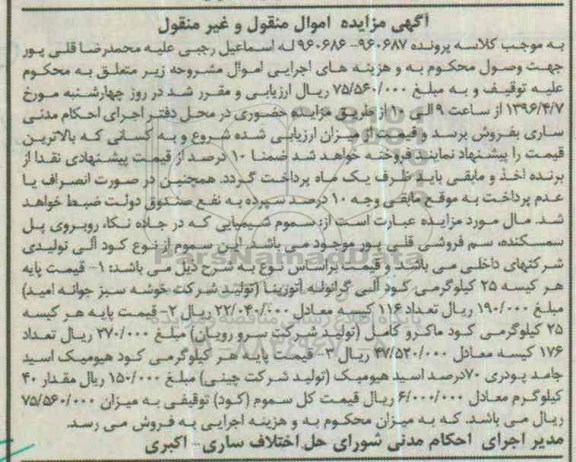 آگهی مزایده اموال منقول و غیر منقول
به موجب کلاسه پرونده ۹۶۰۶۸۷- ۹۶۰۶۸۶ له اسماعیل رجبی علیه محمدرضا قلی پور
جهت وصول محکوم به و هزینه های اجرایی اموال مشروحه زیر متعلق به محکوم
علیه توقیف و به مبلغ ۷۵/۵۶۰/۰۰۰ ریال ارزیابی و مقرر شد در روز چهارشنبه مورخ
۱۳۹۶/۴/۷ از ساعت ۹ الی ۱۰ از طریق مزایده حضوری در محل دفتر اجرای احکام مدنی
ساری بفروش برسد و قیمت از میزان ارزیابی شده شروع و به کسانی که بالاترین
قیمت را پیشنهاد نمایند فروخته خواهد شد ضمنا ۱۰ درصد از قیمت پیشنهادی نقدا از
برنده اخذ و مابقی باید ظرف یک ماه پرداخت گردد. همچنین در صورت انصراف یا
عدم پرداخت به موقع مابقی وجه ۱۰ درصد سپرده به نفع صندوق دولت ضبط خواهد
شد. مال مورد مزایده عبارت است از: سموم شیمیایی که در جاده نکا، روبروی پل
سمسکنده، سم فروشی قلی پور موجود می باشد. این سموم از نوع کود آلی تولیدی
شرکتهای داخلی می باشند و قیمت براساس نوع به شرح ذیل می باشد: ۱- قیمت پایه
هر کیسه ۲۵ کیلوگرمی کود آلی گرانوله آتوزیتا (تولید شرکت خوشه سبز جوانه امید)
مبلغ ۱۹۰/۰۰۰ ریال تعداد ۱۱۶ کیسه معادل ۲۲/۰۴۰/۰۰۰ ریال ۲- قیمت پایه هر کیسه
۲۵ کیلوگرمی کود ماکرو کامل (تولید شرکت سرو رویان) مبلغ ۲۷۰/۰۰۰ ریال تعداد
۱۷۶ کیسه معادل ۴۷/۵۲۰/۰۰۰ ریال ۳- قیمت پایه هر کیلوگرمی کود هیومیک اسید
جامد پودری ۷۰درصد اسید هیومیک (تولید شرکت چینی) مبلغ ۱۵۰/۰۰۰ ریال مقدار ۴۰
کیلوگرم معادل ۶/۰۰۰/۰۰۰ ریال قیمت کل سموم (کود) توقیفی به میزان ۷۵/۵۶۰/۰۰۰
ریال می باشد. که به میزان محکوم به و هزینه اجرایی به فروش می رسد.
مدیر اجرای احکام مدنی شورای حل اختلاف ساری- اکبری
ParsNamadData